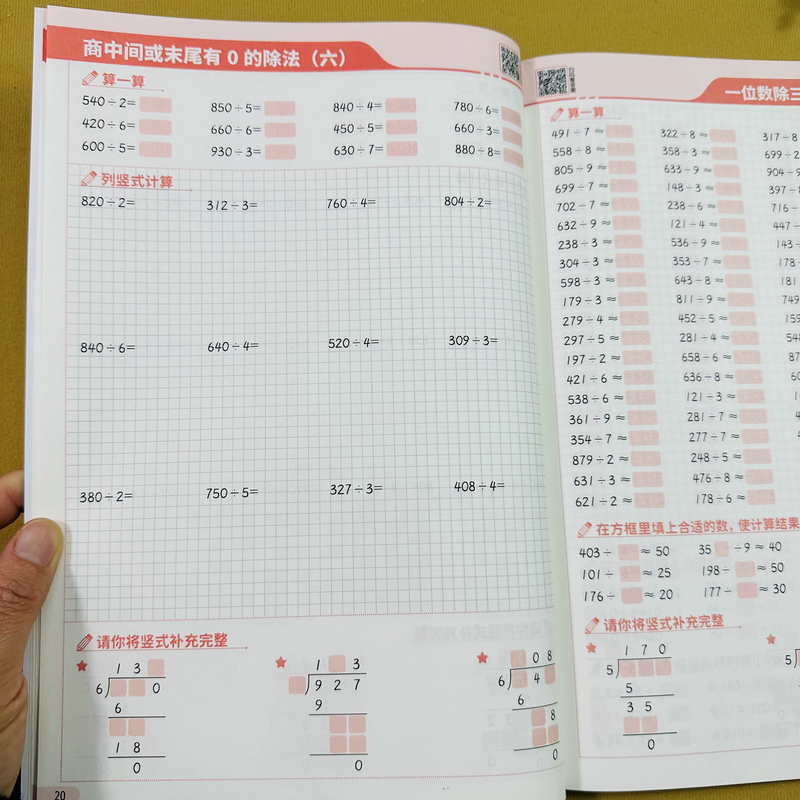 商中间或末尾有 0 的除法（六）
算一算
540÷2= 850÷5= 840÷4= 780÷6=
420÷6= 660÷6= 450÷5= 660÷3=
600÷5= 930÷3= 630÷7= 880÷8=
列竖式计算
820÷2= 312÷3= 760÷4= 804÷2=
840÷6= 640÷4= 520÷4= 309÷3=
380÷2= 750÷5= 327÷3= 408÷4=
请你将竖式补充完整
1 3 1 3 0 8
6 0 9 2 7 6 4
6 9 6
8
1 8
0 0 0
20
一位数除三
算一算
491÷7≈ 322÷8≈ 317÷8
558÷8≈ 358÷3≈ 699÷2
805÷9≈ 633÷9≈ 904÷9
699÷7≈ 148÷3≈ 397÷8
702÷7≈ 238÷6≈ 716÷
632÷9≈ 121÷4≈ 447÷
238÷3≈ 536÷9≈ 143÷
304÷3≈ 353÷7≈ 178÷
598÷3≈ 643÷8≈ 181
179÷3≈ 811÷9≈ 749
279÷4≈ 452÷5≈ 159
297÷5≈ 281÷4≈ 548
197÷2≈ 658÷6≈ 87
421÷6≈ 636÷8≈ 60
538÷6≈ 121÷3≈ 1
361÷9≈ 281÷7≈ 4
354÷7≈ 277÷7≈
879÷2≈ 248÷5≈
631÷3≈ 476÷8≈
621÷2≈ 178÷6≈
在方框里填上合适的数，使计算结果
403÷ ≈50 35 ÷9≈40
101÷ ≈25 198÷ ≈50
176÷ ≈20 177÷ ≈30
请你将竖式补充完整
1 7 0
5 5
5
3 5
0